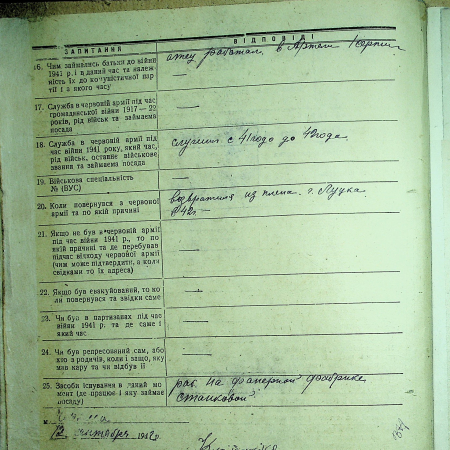 ЗАПИТАННЯ
ВІДПОВІДІ
16. Чим займались батьки до війни
1941 р. і в даний час та належ-
ність їх до комуністичної пар-
тії і з якого часу
отец работал в Артели
17. Служба в червоній армії під час
громадянської війни 1917—22
років, рід військ та займаема
посада
—
18. Служба в червоній армії під
час війни 1941 року, який час,
рід військ, останнє військове
звання та займаема посада
служил с 41 года до 42 года
19. Військова спеціальність
№ (ВУС)
—
20. Коли повернувся з червоної
армії та по якій причині
возвратился из плена г. Луцка
42г. —
21. Якщо не був в червоній армії
під час війни 1941 р., то по
якій причині та де перебував
підчас відходу червоної армії
(чим може підтвердити, а коли
свідками то їх адреса)
—
22. Якщо був евакуйований, то ко-
ли повернувся та звідки саме
—
23. Чи був в партизанах під час
війни 1941 р. та де саме і
який час
—
24. Чи був репресований сам, або
хто з родичів, коли і защо, яку
мав кару та чи відбув її
—
25. Засоби існування в даний мо-
мент (де працює і яку займає
посаду)
раб. на фанерной фабрике
станковой
12 194